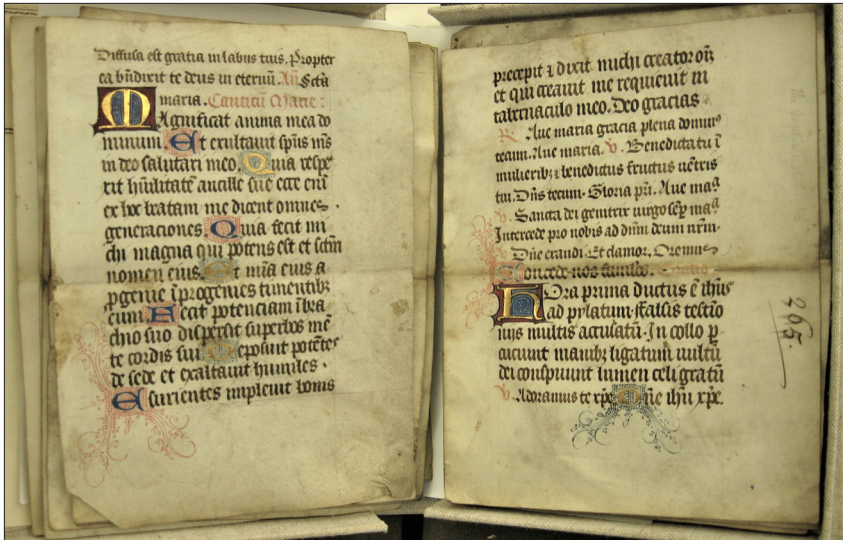 Diffusa est gratia in labiis tuis. Propter
ea bn̄dixit te deus in eternū. An̄. Sctā
maria. Canticū Marie:
Magnificat anima mea do
minum. Et exultauit spūs mīs
in deo salutari meo. Quia respe
xit hūilitatē ancille sue ecce enī
ex hoc beatam me dicent omnes
generaciones. Quia fecit mi
chi magna qui potens est et sctm̄
nomen eius. Et mīa eius a
ꝓgenie ī progenies timentibꝫ
eum. Fecit potenciam ī bra
chio suo dispersit superbos mē
te cordis sui. Deposuit potētes
de sede et exaltauit humiles.
Esurientes impleuit bonis
precepit ⁊ dixit michi creator oīm
et qui creauit me requieuit in
tabernaculo meo. Deo gracias
R. Aue maria gracia plena dominus
tecum. Aue maria. V. Benedicta tu ī
mulieribꝫ ⁊ benedictus fructus uētris
tui. Dn̄s tecum. Gloria pr̄i. Aue maa
V. Sancta dei genitrix uirgo sēp maa
Intercede pro nobis ad dn̄m deum nr̄m.
Dn̄e exaudi. Et clamor. Oremus
Concede nos famulos.
Hora prima ductus ē ihūs
ad pylatum. Falsis testīo
niis multis accusatū. In collo ꝑ
cuciunt manibꝫ ligatum uultū
dei conspuunt lumen celi gratū
V. Adoramus te xp̄e. Dn̄e ihū xp̄e.
265.